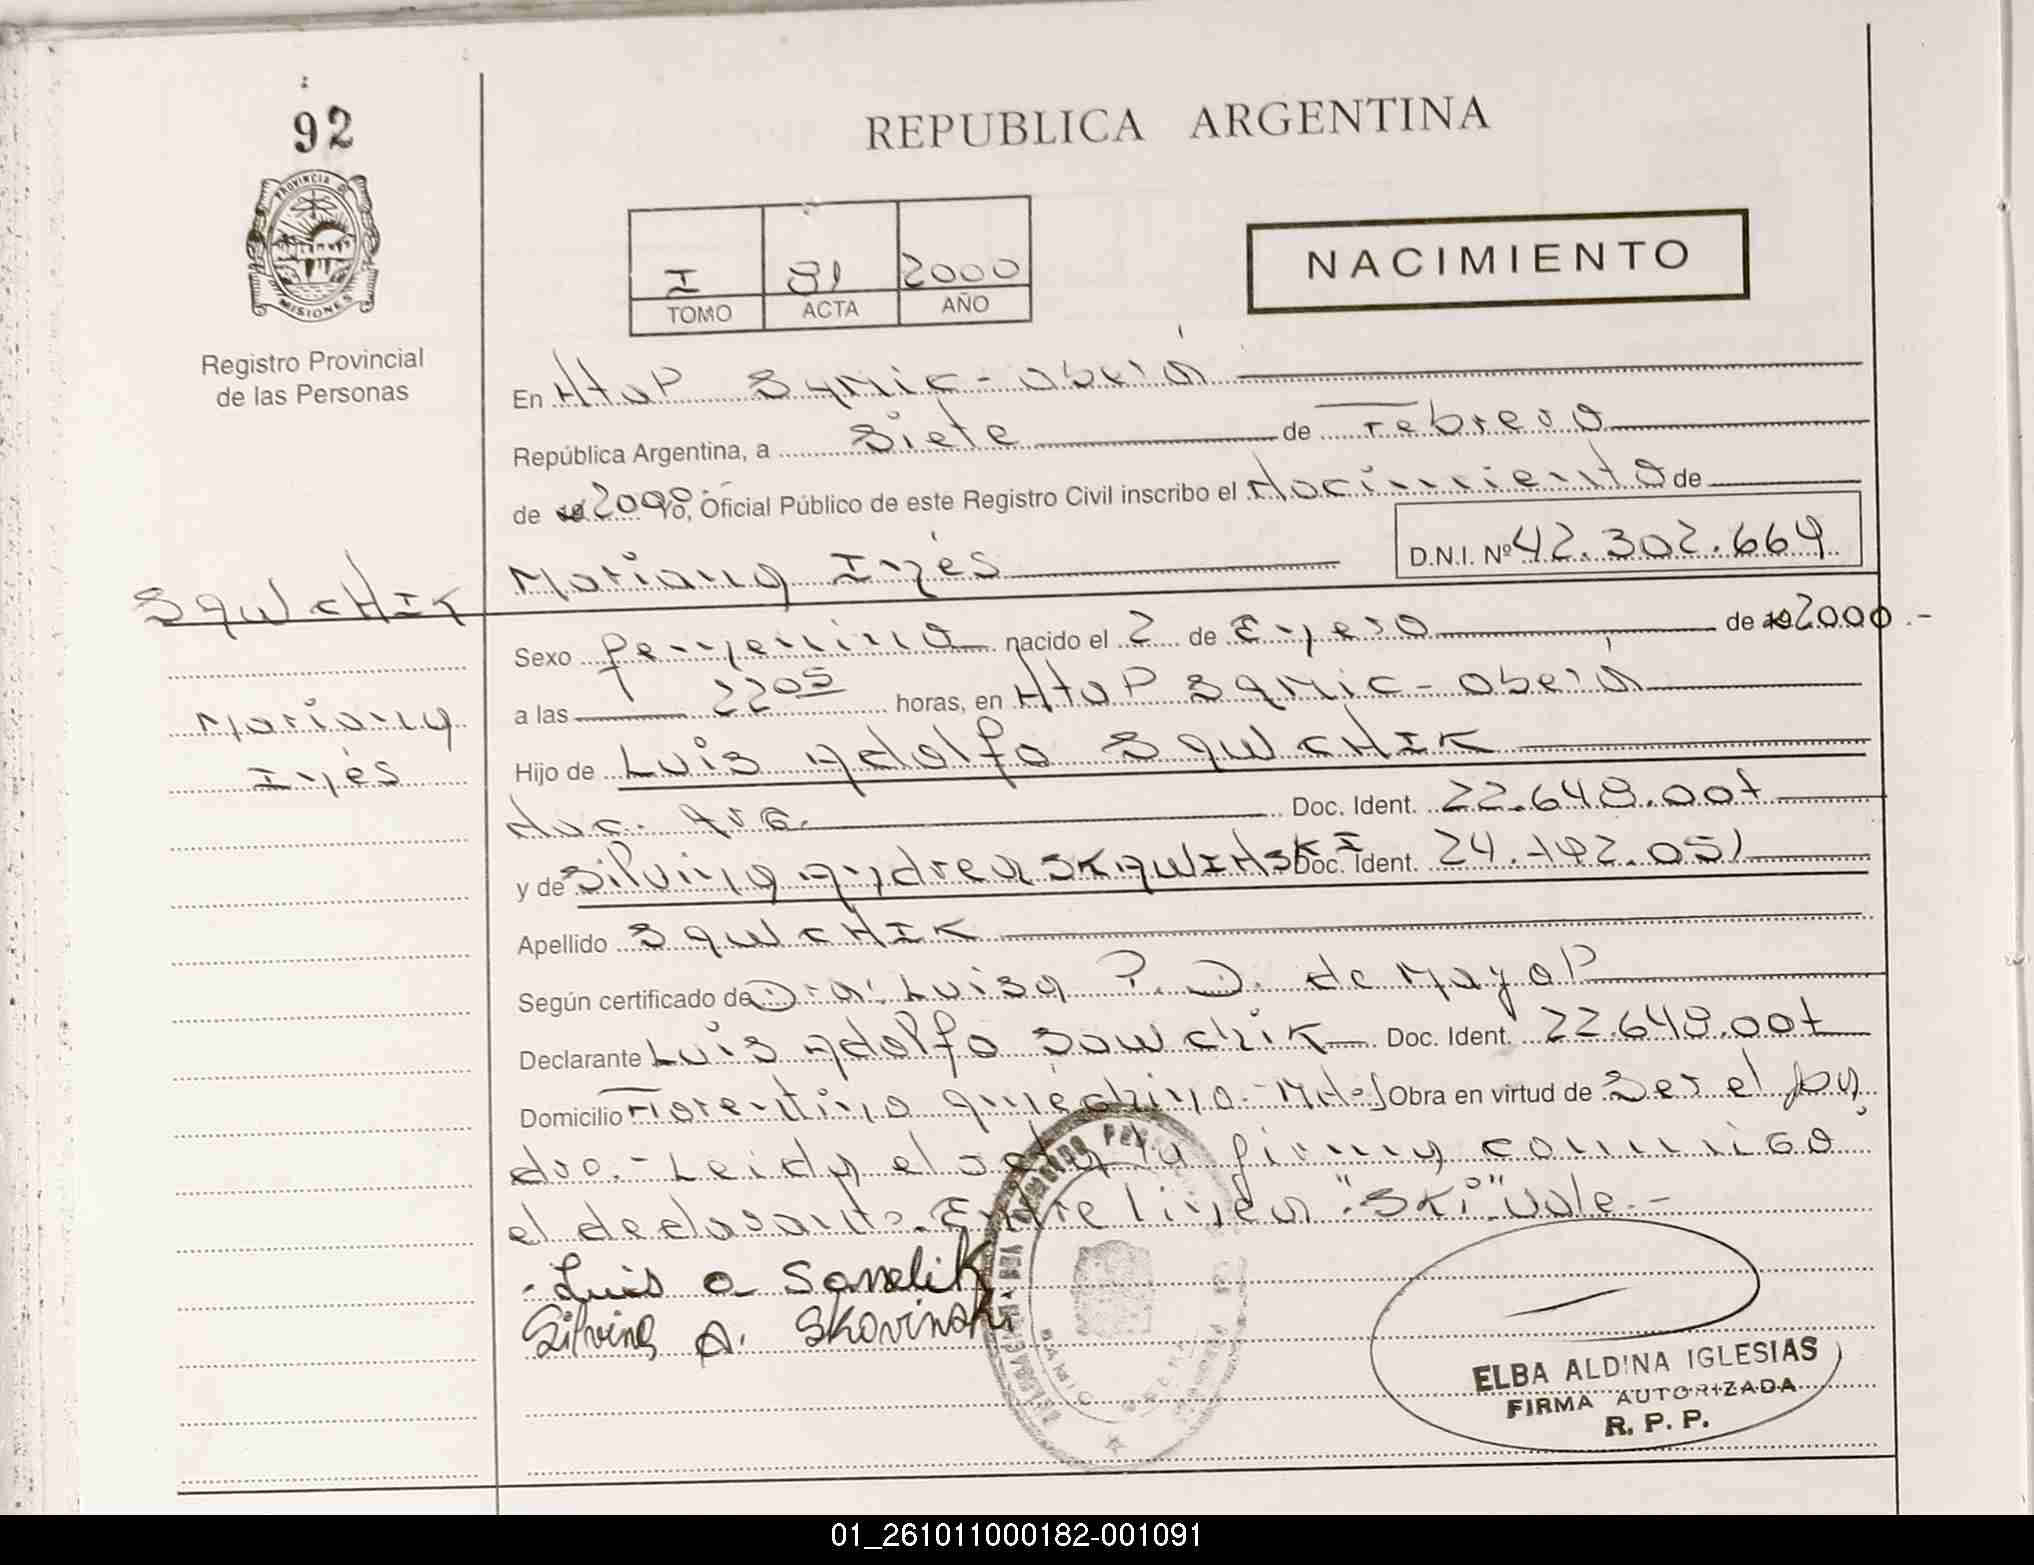 92
REPUBLICA ARGENTINA
PROVINCIA DE
MISIONES
I 91 2000
TOMO ACTA AÑO
NACIMIENTO
Registro Provincial
de las Personas
En Htal Samic - Oberá
República Argentina, a siete de Febrero
de 2000, Oficial Público de este Registro Civil inscribo el Nacimiento de
Mariana Inés D.N.I. Nº 42.302.664
SAWCHIK
Mariana
Inés
Sexo femenino nacido el 2 de Enero de 2000.-
a las 22 05 horas, en Htal Samic - Oberá
Hijo de Luis Adolfo SAWCHIK
Nac. Arg. Doc. Ident. 22.648.007
y de Silvina Andrea SKAWINSKI Doc. Ident. 24.192.051
Apellido SAWCHIK
Según certificado de Dra. Luisa P. D. de Mayol
Declarante Luis Adolfo Sawchik Doc. Ident. 22.648.007
Domicilio Florentino Ameghino - Mnes Obra en virtud de ser el pa
dre.- Leida el acta la firma conmigo
el declarante. Entre linea "SKI" vale.-
Luis A Sawchik
Silvina A. Skavinski
SAMIC
ELBA ALDINA IGLESIAS
FIRMA AUTORIZADA
R. P. P.
01_261011000182-001091